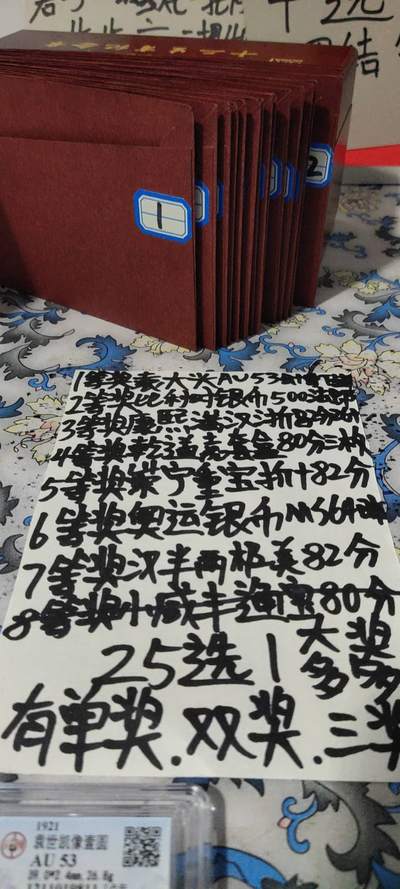 1
2
1等奖袁大头AU53
2等奖比利时银币500法郎
3等奖康熙满汉浙82分
4等奖乾道亮套盒80分三奖
5等奖崇宁重宝折十82分
6等奖奥运银币MS64
7等奖汉半两极美82分
8等奖小咸丰通宝80分
25选1
大奖
多多
有单奖.双奖.三奖
1921
袁世凯像壹圆
AU 53
39.0*2.4mm.26.8g